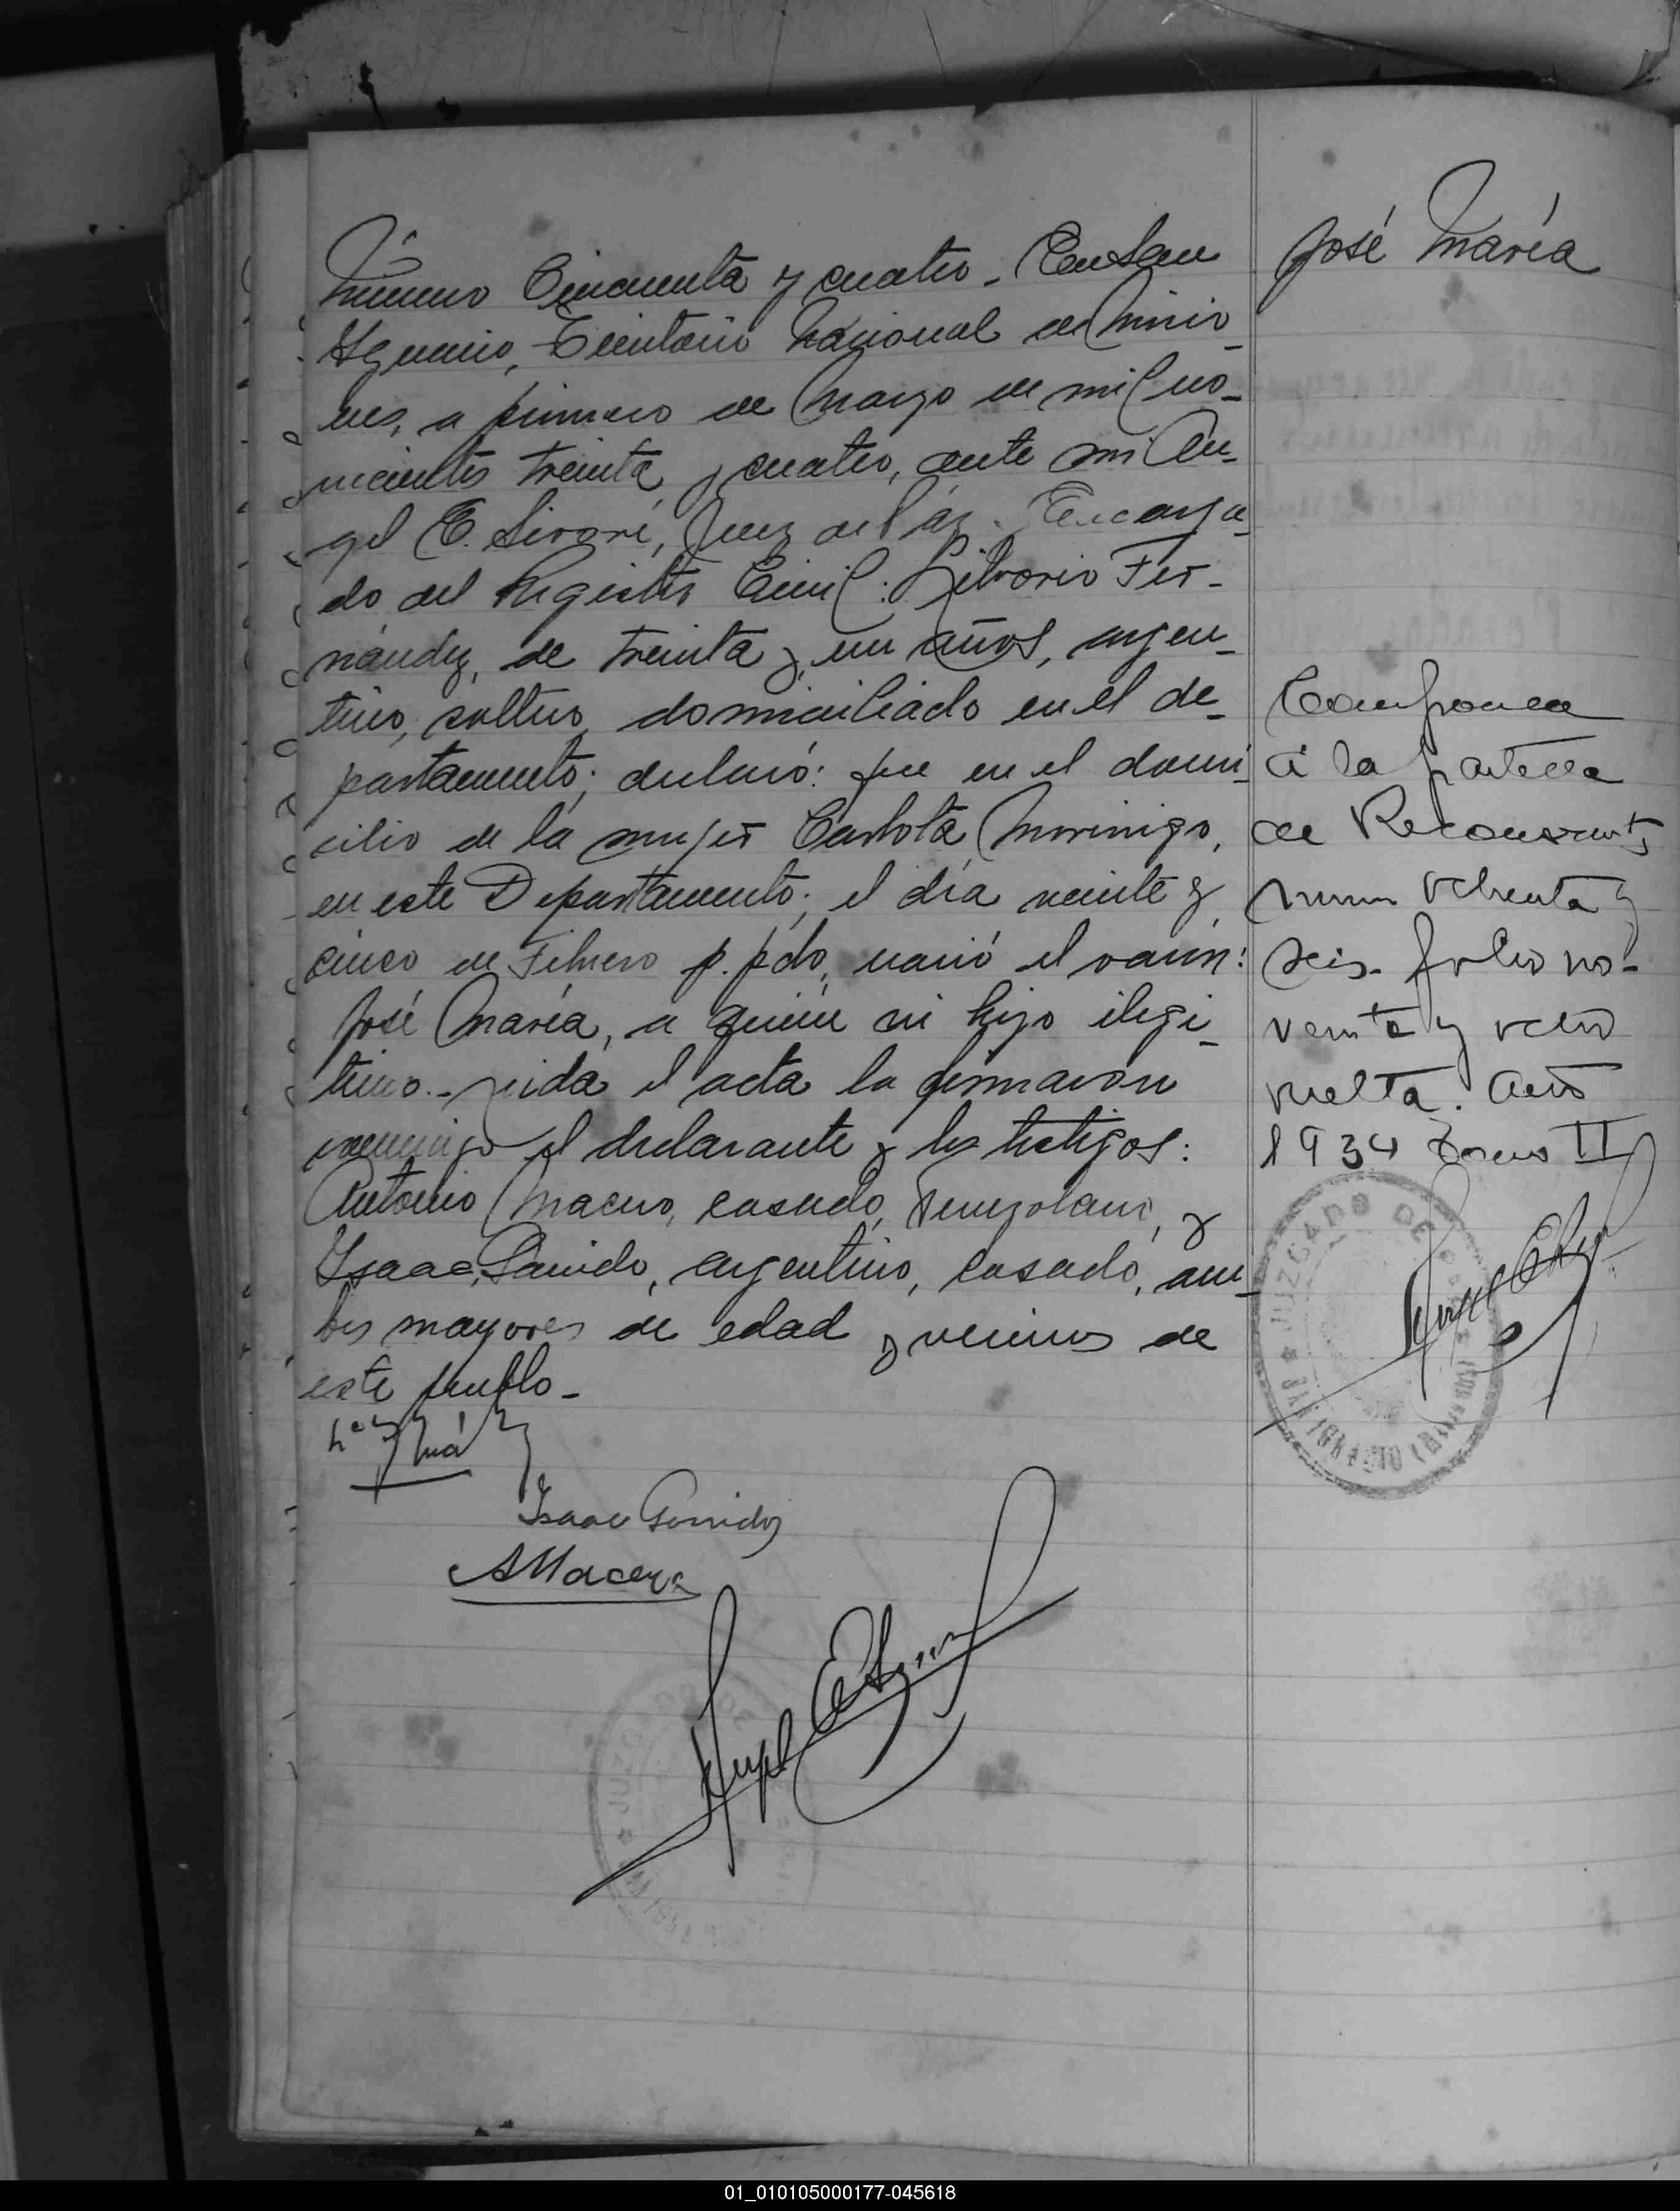 Número Cincuenta y cuatro - En San
Ignacio, Territorio Nacional de Misio_
nes, a primero de Marzo de mil no_
vecientos treinta y cuatro, ante mi An_
gel E. Sivori, Juez de Páz. Encarga_
do del Registro Civil: Liborio Fer_
nández, de treinta y un años, argen_
tino, soltero, domiciliado en el de_
partamento; declaró: que en el domi
cilio de la mujer Carlota Morinigo,
en este Departamento; el día veinte y
cinco de Febrero p.pdo, nació el varón:
José María, a quién hijo ilegi_
timo._ Leida el acta la firmaron
conmigo el declarante y los testigos:
Antonio Macero, casado, Venezolano, y
Isaac Garrido, argentino, casado, am_
bos mayores de edad y vecinos de
este pueblo_
Isaac Garrido
AMacero
Angel E
José María
Comparen
á la partida
de Reconocimto
num ochenta y
seis. folio no-
venta y ocho
vuelta. año
1934 Tomo II
JUZGADO DE PAZ
SAN IGNACIO (MISIONES)
JUZGADO DE
01_010105000177-045618